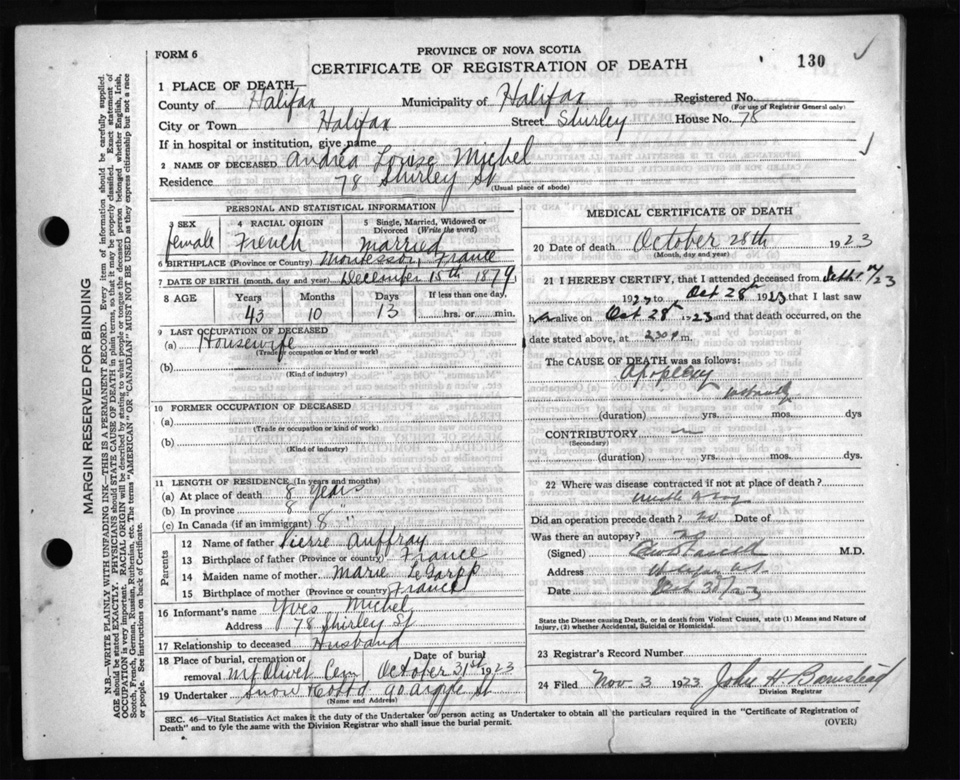 FORM 6
PROVINCE OF NOVA SCOTIA
CERTIFICATE OF REGISTRATION OF DEATH
130
1 PLACE OF DEATH
County of Halifax Municipality of Halifax Registered No.
(For use of Registrar General only)
City or Town Halifax Street Shirley House No. 78
If in hospital or institution, give name
2 NAME OF DECEASED Andréa Louise Michel
Residence 78 Shirley St
(Usual place of abode)
PERSONAL AND STATISTICAL INFORMATION
3 SEX 4 RACIAL ORIGIN 5 Single, Married, Widowed or Divorced (Write the word)
female French Married
6 BIRTHPLACE (Province or Country) France
7 DATE OF BIRTH (month, day and year) December 15th 1879
8 AGE Years Months Days If less than one day,
43 10 13 hrs. or min.
9 LAST OCCUPATION OF DECEASED
(a) Housewife
(Trade or occupation or kind of work)
(b)
(Kind of industry)
10 FORMER OCCUPATION OF DECEASED
(a)
(Trade or occupation or kind of work)
(b)
(Kind of industry)
11 LENGTH OF RESIDENCE (In years and months)
(a) At place of death 8 years
(b) In province 8 "
(c) In Canada (if an immigrant) 8 "
Parents
12 Name of father Pierre Auffray
13 Birthplace of father (Province or country) France
14 Maiden name of mother Marie
15 Birthplace of mother (Province or country) France
16 Informant's name Yves Michel
Address 78 Shirley St
17 Relationship to deceased Husband
18 Place of burial, cremation or removal Mt Olivet Cem Date of burial October 31st 1923
19 Undertaker Snow & Co Ltd 90 Argyle St
(Name and Address)
MEDICAL CERTIFICATE OF DEATH
20 Date of death October 28th 1923
(Month, day and year)
21 I HEREBY CERTIFY, that I attended deceased from
to Oct 28th 1923 that I last saw
her alive on Oct 28th 1923 and that death occurred, on
date stated above, at 2.30 P m.
The CAUSE OF DEATH was as follows:
Apoplexy
(duration) yrs. mos. dys
CONTRIBUTORY
(Secondary)
(duration) yrs. mos. dys.
22 Where was disease contracted if not at place of death?
Did an operation precede death? no Date of
Was there an autopsy? no
(Signed) M.D.
Address
Date
State the Disease causing Death, or in death from Violent Causes, state (1) Means and Nature of Injury, (2) whether Accidental, Suicidal or Homicidal.
23 Registrar's Record Number
24 Filed Nov 3 1923 John H Barnstead
Division Registrar
SEC. 46—Vital Statistics Act makes it the duty of the Undertaker or person acting as Undertaker to obtain all the particulars required in the "Certificate of Registration of
Death" and to fyle the same with the Division Registrar who shall issue the burial permit.
(OVER)
MARGIN RESERVED FOR BINDING
N.B.—WRITE PLAINLY WITH UNFADING INK—THIS IS A PERMANENT RECORD. Every item of information should be carefully supplied.
AGE should be stated EXACTLY. PHYSICIANS should STATE CAUSE OF DEATH in plain terms, so that it may be properly classified. Exact statement of
OCCUPATION is very important. RACIAL ORIGIN will be described by stating to what people or tongue the deceased person belonged whether English, Irish,
Scotch, French, German, Russian, Ruthenian, etc. The terms "AMERICAN" OR "CANADIAN" MUST NOT BE USED as they express citizenship but not a race
or people. See instructions on back of Certificate.